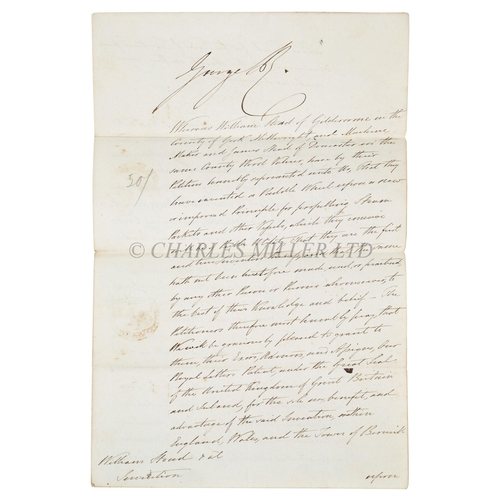 George R.
Whereas William Stead of Gildersome in the
County of York Millwright and Machine
Maker and James Stead of Doncaster in the
same County Wood Valuer, have by their
Petition humbly represented unto Us, that they
have invented a Paddle Wheel upon a new
or improved Principle for propelling Steam
Packets and other Vessels, which they conceive
will be of Public Utility; That they are the first
and true Inventors thereof, and that the same
hath not been heretofore made, used, or practised
by any other Person or Persons whomsoever, to
the best of their Knowledge and belief – The
Petitioners therefore most humbly pray, that
We will be graciously pleased to grant to
them, their Exors, Admors, and Assigns, Our
Royal Letters Patent under the Great Seal
of the United Kingdom of Great Britain
and Ireland, for the sole use, benefit, and
advantage of the said Invention, within
England, Wales, and the Town of Berwick
upon
William Stead & al
Invention
30/
© CHARLES MILLER LTD